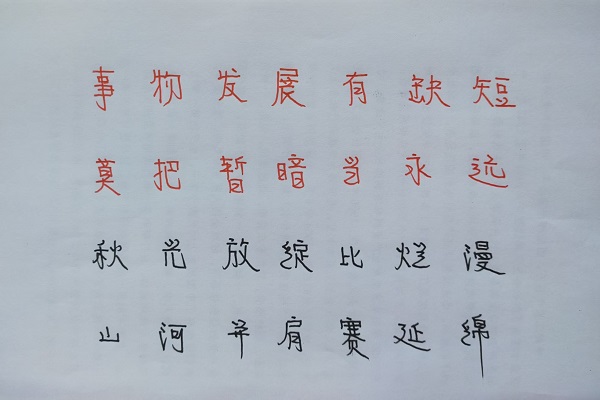 事物发展有缺短
莫把暂暗当永远
秋光放绽比烂漫
山河并肩赛延绵